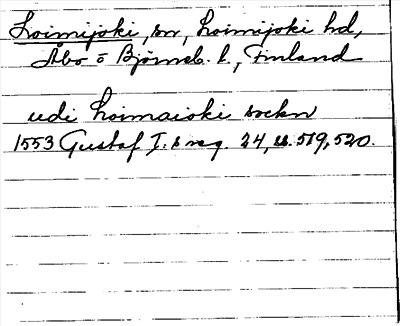 Loimijoki, sn, Loimijoki hd,
Åbo o Björneb. l., Finland
udi Loimaioki sockn
1553 Gustaf I:s reg. 24, s. 519, 520.